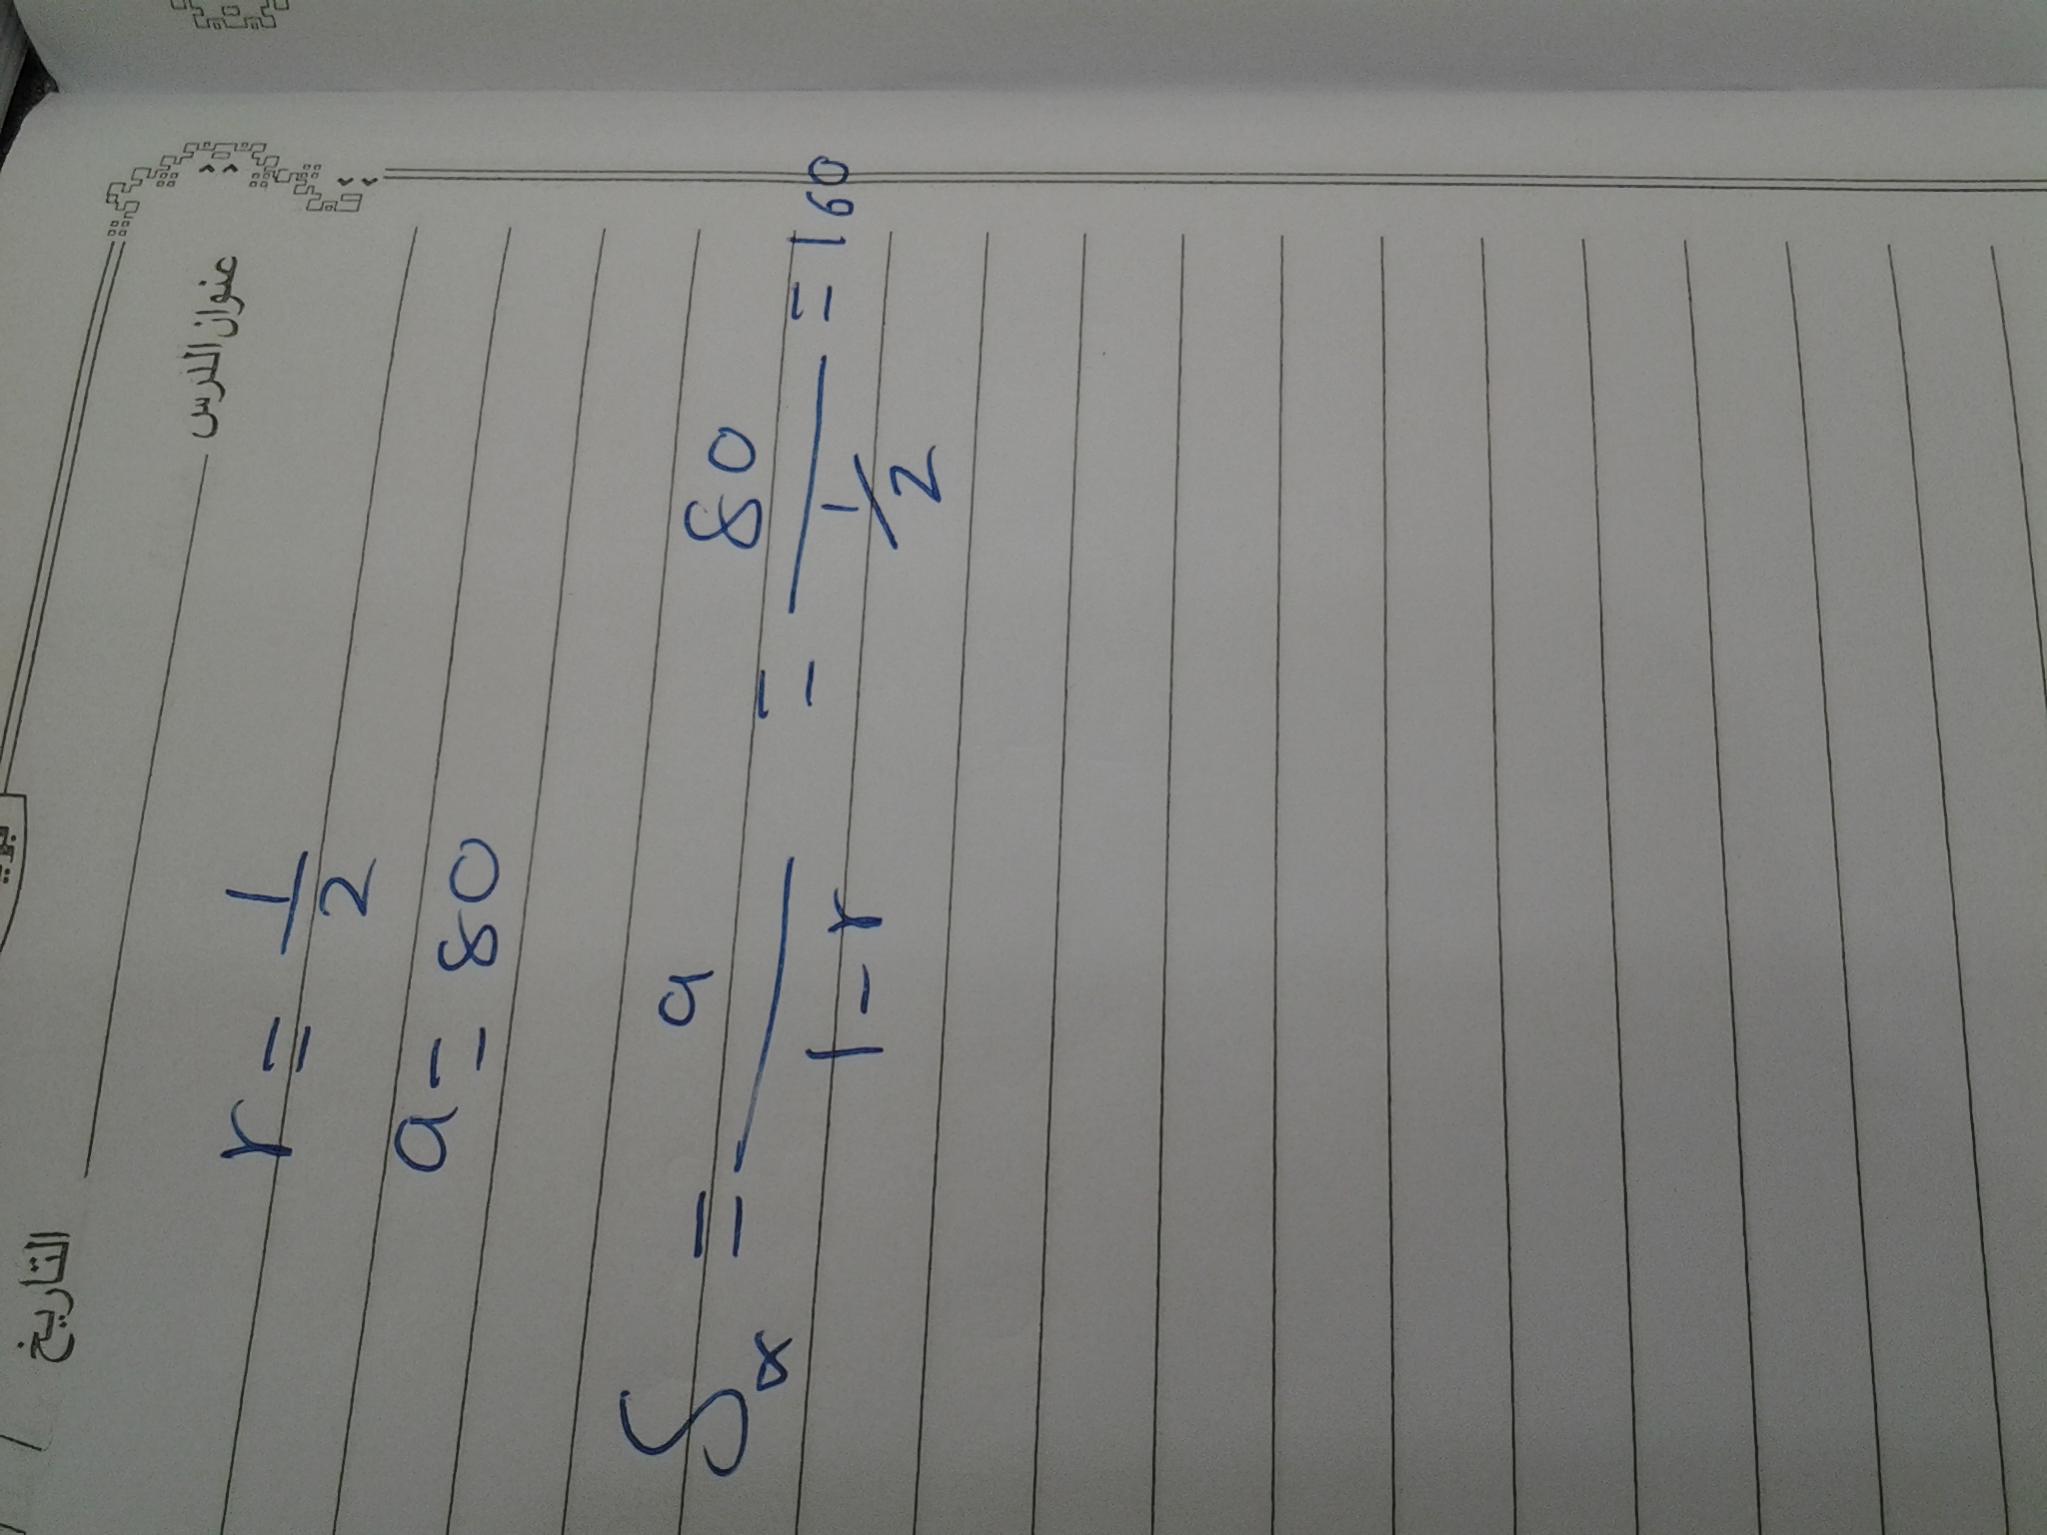 التاريخ
عنوان الدرس
r = 1/2
a = 80
S∝ = a / 1 - r = 80 / 1/2 = 160